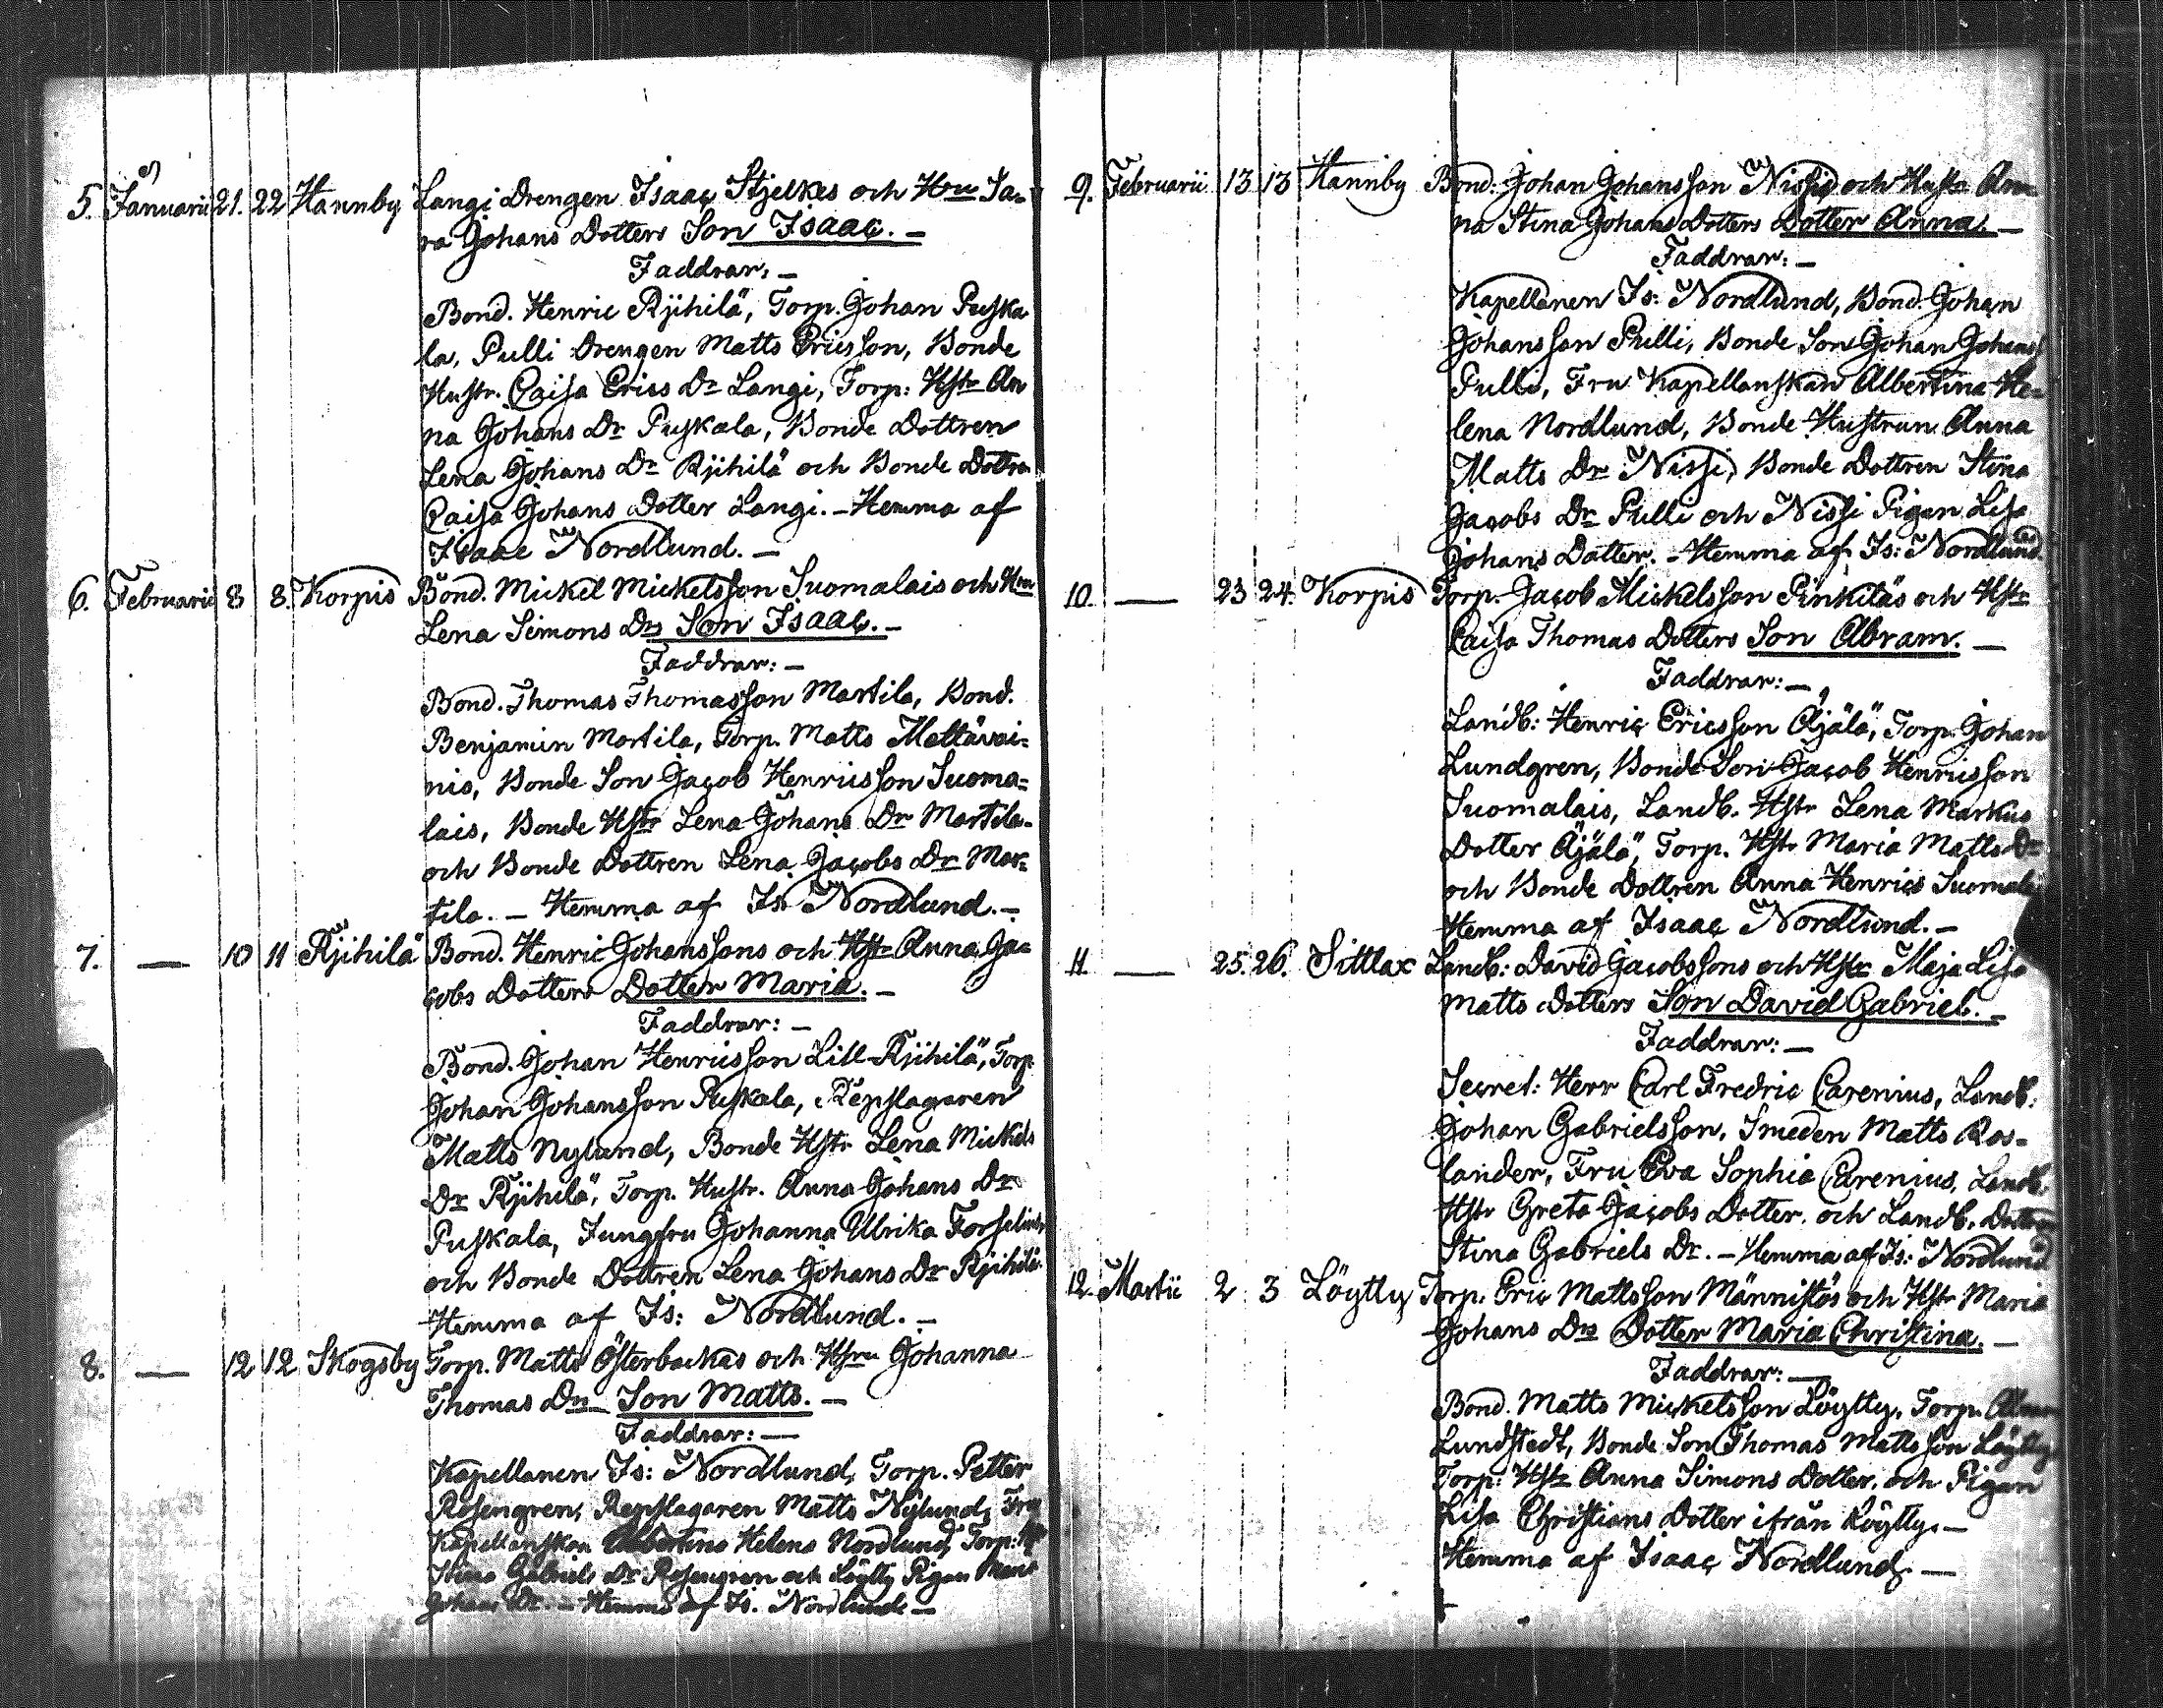 5. Januarii 21. 22 Hannby Langi Drengen Isaac Stjelkes och Hru Sa-
ra Johans Dotters Son Isaac. —
Faddrar: —
Bond. Henric Rjihilä, Torp. Johan Puska
la, Pulli Drengen Matts Ericsson, Bonde
Hustr. Caisa Erics Dr Langi, Torp: Hstr An
na Johans Dr Puskala, Bonde Dottren
Lena Johans Dr Rjihilä och Bonde Dottren
Caisa Johans Dotter Langi. — Hemma af
Isaac Nordlund. —
6. Februarii 8 8. Korpis Bond. Mickel Mickelsson Suomalais och Hru
Lena Simons Drs Son Isaac. —
Faddrar: —
Bond. Thomas Thomasson Martila, Bond.
Benjamin Martila, Torp. Matts Mettävai-
nis, Bonde Son Jacob Henricsson Suoma-
lais, Bonde Hstr Lena Johans Dr Martila.
och Bonde Dottren Lena Jacobs Dr Mar-
tila. — Hemma af Is Nordlund. —
7. — 10 11 Rjihilä Bond. Henric Johanssons och Hstr Anna Ja-
cobs Dotters Dotter Maria. —
Faddrar: —
Bond. Johan Henricsson Lill-Rjihilä, Torp.
Johan Johansson Puskala, Repslagaren
Matts Nylund, Bonde Hstr Lena Mickels
Dr Rjihilä, Torp. Hustr. Anna Johans Dr
Puskala, Jungfru Johanna Ulrika Forselius,
och Bonde Dottren Lena Johans Dr Rjihilä.
Hemma af Is: Nordlund. —
8. — 12 12 Skogsby Torp. Matts Österbackas och Hstru Johanna
Thomas Drs Son Matts. —
Faddrar: —
Kapellanen Is: Nordlund, Torp. Petter
Rosengren, Repslagaren Matts Nylund, Fru
Kapellanskan Albertina Helena Nordlund, Torp:
Stina Gabriels Dr Rosengren och Löytty Pigan Maria
Johans Dr. — Hemma af Is. Nordlund —
9. Februarii 13 13 Hannby Bond: Johan Johansson Nissis och Hustr An-
na Stina Johans Dotters Dotter Anna. —
Faddrar: —
Kapellanen Is: Nordlund, Bond. Johan
Johansson Pulli, Bonde Son Johan Johanss
Pulli, Fru Kapellanskan Albertina He-
lena Nordlund, Bonde Hustrun Anna
Matts Dr Nissi, Bonde Dottren Stina
Jacobs Dr Pulli och Nissi Pigan Lisa
Johans Dotter. — Hemma af Is: Nordlund.
10. — 23 24. Korpis Torp. Jacob Mickelsson Pinkiläs och Hstr
Caisa Thomas Dotters Son Abram. —
Faddrar: —
Landb: Henric Ericsson Äjälä, Torp. Johan
Lundgren, Bonde Son Jacob Henricsson
Suomalais, Landb. Hstr Lena Markus
Dotter Äjälä, Torp. Hstr Maria Matts Dr
och Bonde Dottren Anna Henrics Suomalais
Hemma af Isaac Nordlund. —
11. — 25. 26. Sittlax Landb: David Jacobssons och Hstr Maja Lisa
Matts Dotters Son David Gabriel. —
Faddrar: —
Secret: Herr Carl Fredric Carenius, Landb.
Johan Gabrielsson, Smeden Matts Ros-
lander, Fru Eva Sophia Carenius, Landb.
Hstr Greta Jacobs Dotter, och Landb. Dottren
Stina Gabriels Dr. — Hemma af Is: Nordlund
12. Martii 2 3 Löytty Torp. Eric Mattsson Männistös och Hstr Maria
Johans Drs Dotter Maria Christina. —
Faddrar: —
Bond. Matts Mickelsson Löytty, Torp.
Lundstedt, Bonde Son Thomas Mattsson Löytty
Torp: Hstr Anna Simons Dotter, och Pigan
Lisa Christians Dotter ifrån Löytty. —
Hemma af Isaac Nordlund. —